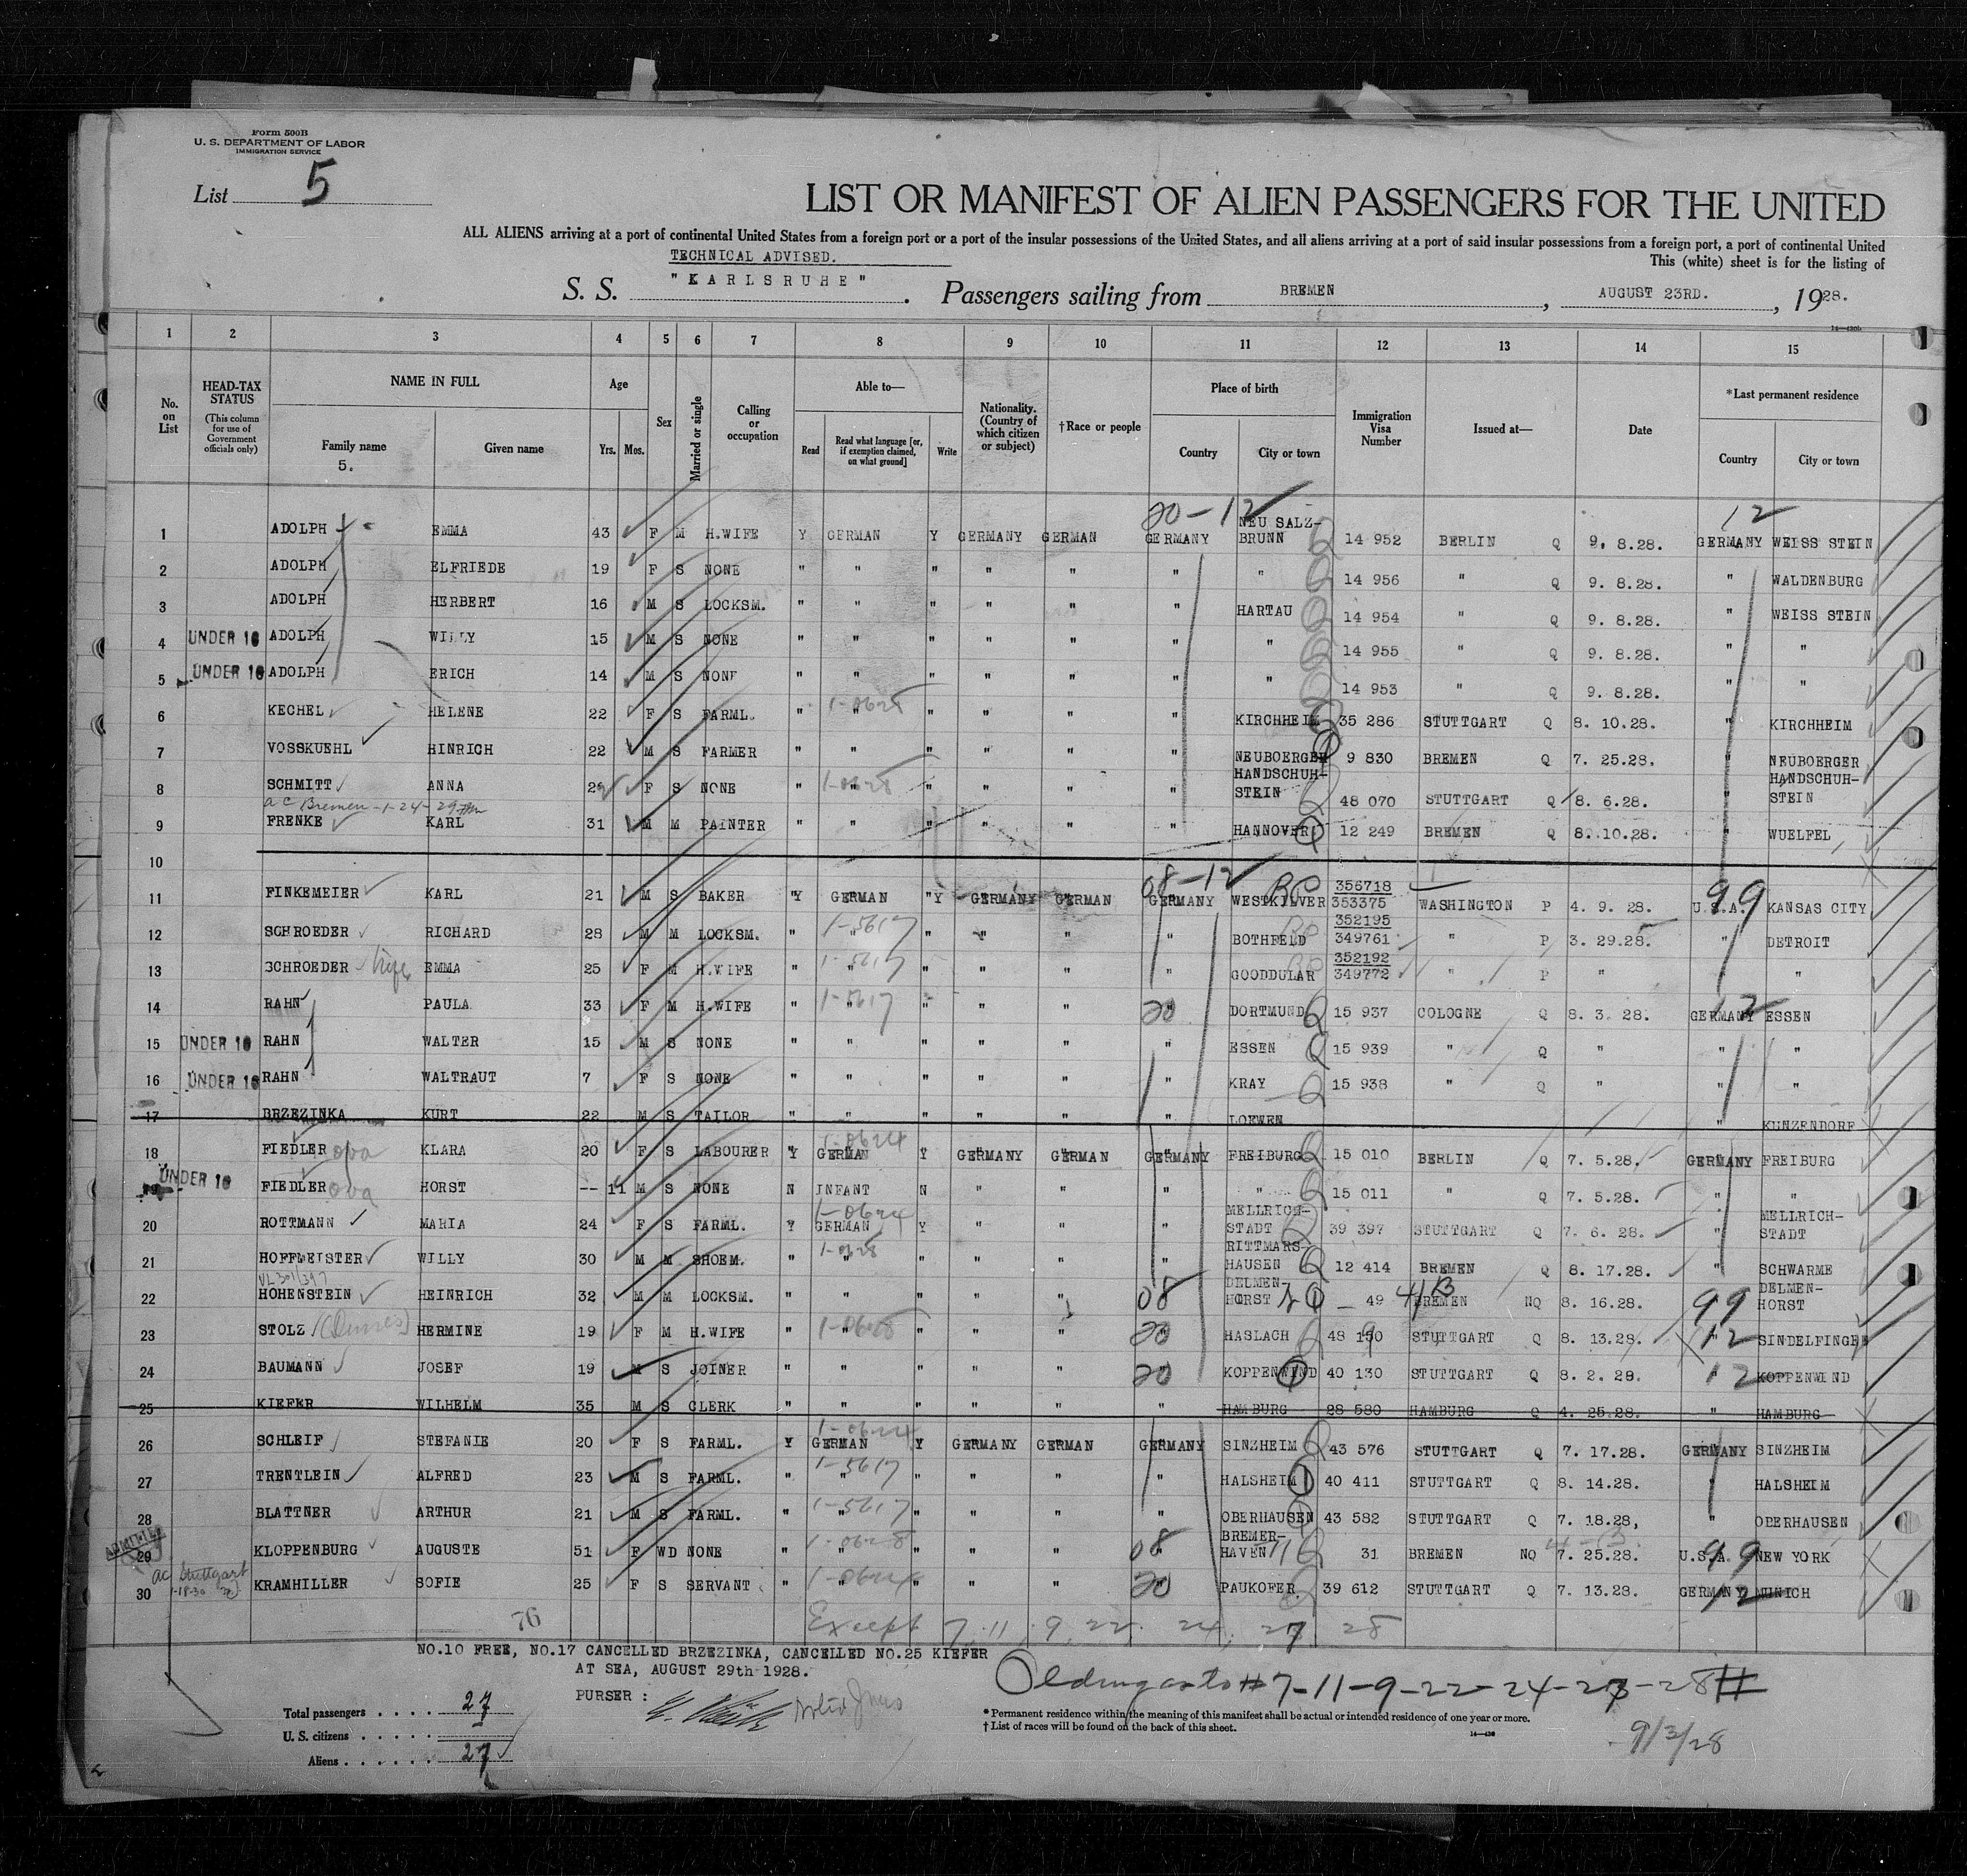 Form 500B
U. S. DEPARTMENT OF LABOR
IMMIGRATION SERVICE
List 5
LIST OR MANIFEST OF ALIEN PASSENGERS FOR THE UNITED
ALL ALIENS arriving at a port of continental United States from a foreign port or a port of the insular possessions of the United States, and all aliens arriving at a port of said insular possessions from a foreign port, a port of continental United
TECHNICAL ADVISED.
This (white) sheet is for the listing of
S. S. "KARLSRUHE". Passengers sailing from BREMEN, AUGUST 23RD., 1928.
14—430b
1 2 3 4 5 6 7 8 9 10 11 12 13 14 15
No. on List
HEAD-TAX STATUS (This column for use of Government officials only)
NAME IN FULL Family name Given name
5.
Age Yrs. Mos.
Sex
Married or single
Calling or occupation
Able to— Read Read what language [or, if exemption claimed, on what ground] Write
Nationality. (Country of which citizen or subject)
†Race or people
Place of birth Country City or town
Immigration Visa Number
Issued at—
Date
*Last permanent residence Country City or town
20-12 12
1 ADOLPH EMMA 43 F M H.WIFE Y GERMAN Y GERMANY GERMAN GERMANY NEU SALZ-BRUNN 14 952 BERLIN Q 9. 8.28. GERMANY WEISS STEIN
2 ADOLPH ELFRIEDE 19 F S NONE " " " " " " " 14 956 " Q 9. 8.28. " WALDENBURG
3 ADOLPH HERBERT 16 M S LOCKSM. " " " " " " HARTAU 14 954 " Q 9. 8.28. " WEISS STEIN
4 UNDER 16 ADOLPH WILLY 15 M S NONE " " " " " " " 14 955 " Q 9. 8.28. " "
5 UNDER 16 ADOLPH ERICH 14 M S NONE " " " " " " " 14 953 " Q 9. 8.28. " "
6 KECHEL HELENE 22 F S FARML. " " " " " " KIRCHHEIM 35 286 STUTTGART Q 8. 10.28. " KIRCHHEIM
7 VOSSKUEHL HINRICH 22 M S FARMER " " " " " " NEUBOERGER 9 830 BREMEN Q 7. 25.28. " NEUBOERGER
8 SCHMITT ANNA 29 F S NONE " 1-0628 " " " " " HANDSCHUH-STEIN 48 070 STUTTGART Q 8. 6.28. " HANDSCHUH-STEIN
ac Bremen-1-24-29
9 FRENKE KARL 31 M M PAINTER " " " " " " HANNOVER 12 249 BREMEN Q 8.10.28. " WUELFEL
10
08-12 BP 99
11 FINKEMEIER KARL 21 M S BAKER Y GERMAN Y GERMANY GERMAN GERMANY WESTKILVER 356718 353375 WASHINGTON P 4. 9. 28. U.S.A. KANSAS CITY
12 SCHROEDER RICHARD 28 M M LOCKSM. " 1-5617 " " " " " BOTHFELD 352195 349761 " P 3. 29.28. " DETROIT
13 SCHROEDER wife EMMA 25 F M H.WIFE " 1-5617 " " " " " GOODDULAR 352192 349772 " P " " "
14 RAHN PAULA 33 F M H.WIFE " 1-5617 " " " " 20 DORTMUND 15 937 COLOGNE Q 8. 3. 28. GERMANY 12 ESSEN
15 UNDER 16 RAHN WALTER 15 M S NONE " " " " " " ESSEN 15 939 " Q " " "
16 UNDER 16 RAHN WALTRAUT 7 F S NONE " " " " " " KRAY 15 938 " Q " " "
17 BRZEZINKA KURT 22 M S TAILOR " " " " " " LOEWEN " KUNZENDORF
18 FIEDLER KLARA 20 F S LABOURER Y 1-0624 GERMAN Y GERMANY GERMAN GERMANY FREIBURG 15 010 BERLIN Q 7. 5.28. GERMANY FREIBURG
19 UNDER 16 FIEDLER HORST -- 11 M S NONE N INFANT N " " " " 15 011 " Q 7. 5.28. " "
20 ROTTMANN MARIA 24 F S FARML. Y 1-0624 GERMAN Y " " " MELLRICH-STADT 39 397 STUTTGART Q 7. 6. 28. " MELLRICH-STADT
21 HOFFMEISTER WILLY 30 M M SHOEM. " 1-0628 " " " " " RITTMARS-HAUSEN 12 414 BREMEN Q 8. 17.28. " SCHWARME
22 HOHENSTEIN HEINRICH 32 M M LOCKSM. " " " " " 08 DELMEN-HORST 49 4/B BREMEN NQ 8. 16.28. 99 DELMEN-HORST
23 STOLZ HERMINE 19 F M H.WIFE " 1-0628 " " " " 20 HASLACH 48 150 STUTTGART Q 8. 13.28. 12 SINDELFINGEN
24 BAUMANN JOSEF 19 M S JOINER " " " " " 20 KOPPENWIND 40 130 STUTTGART Q 8. 2. 28. 12 KOPPENWIND
25 KIEFER WILHELM 35 M S CLERK " " " " " " HAMBURG 28 580 HAMBURG Q 4. 25.28. " HAMBURG
26 SCHLEIF STEFANIE 20 F S FARML. Y 1-0624 GERMAN Y GERMANY GERMAN GERMANY SINZHEIM 43 576 STUTTGART Q 7. 17.28. GERMANY SINZHEIM
27 TRENTLEIN ALFRED 23 M S FARML. " 1-5617 " " " " " HALSHEIM 40 411 STUTTGART Q 8. 14.28. " HALSHEIM
28 BLATTNER ARTHUR 21 M S FARML. " 1-5617 " " " " " OBERHAUSEN 43 582 STUTTGART Q 7. 18.28, " OBERHAUSEN
29 ADMITTED KLOPPENBURG AUGUSTE 51 F WD NONE " 1-0628 " " " " 08 BREMER-HAVEN 31 BREMEN NQ 7. 25.28. U.S.A. 99 NEW YORK
ac Stuttgart 1-18-30
30 KRAMHILLER SOFIE 25 F S SERVANT " 1-0624 " " " " 20 PAUKOFER 39 612 STUTTGART Q 7. 13.28. GERMANY 12 MUNICH
76 Except 7, 11, 9, 22, 24, 27, 28
NO.10 FREE, NO.17 CANCELLED BRZEZINKA, CANCELLED NO.25 KIEFER
AT SEA, AUGUST 29th 1928.
PURSER :
#7-11-9-22-24-27-28#
Total passengers . . . . 27
U. S. citizens . . . . .
Aliens . . . . . . 27
* Permanent residence within the meaning of this manifest shall be actual or intended residence of one year or more.
† List of races will be found on the back of this sheet.
14—430
9/3/28